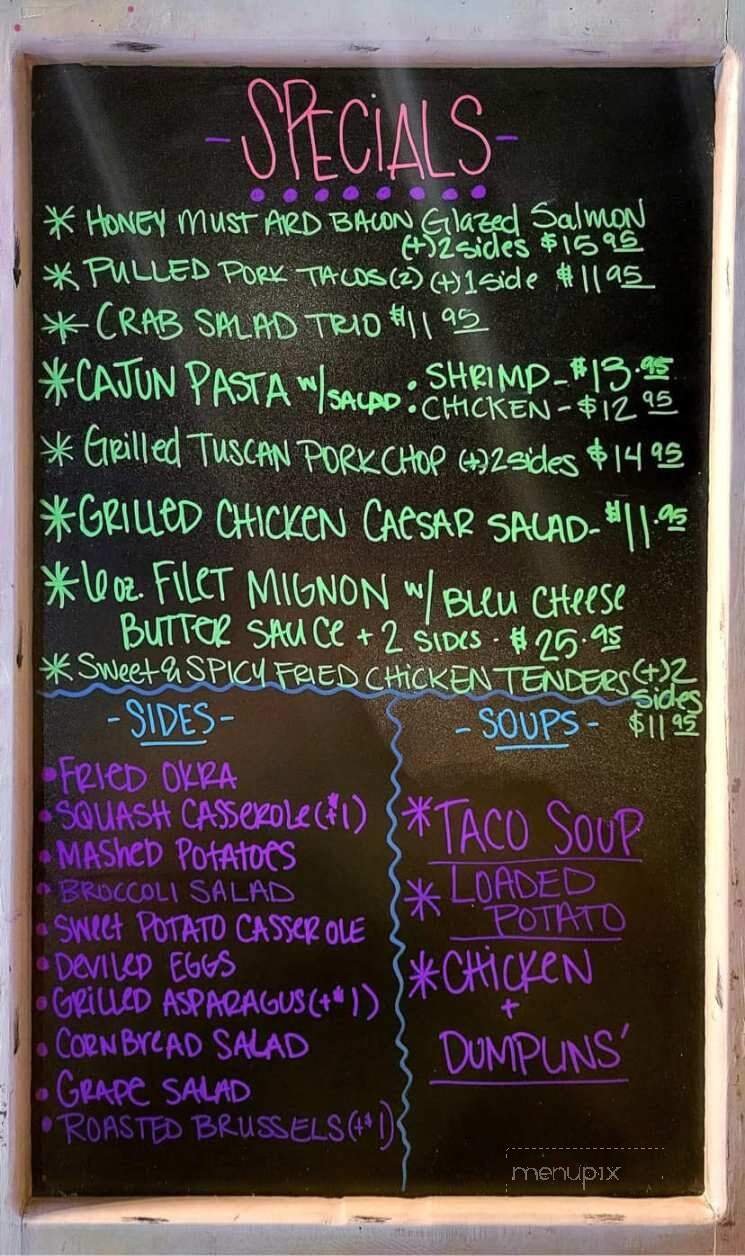 - SPECiALS -
* HONEY MUSTARD BACON Glazed Salmon
(+) 2 sides $15 95
* PULLED PORK TACOS (2) (+) 1 side $11 95
* CRAB SALAD TRIO $11 95
* CAJUN PASTA w/ SALAD : SHRIMP - $13.95
CHICKEN - $12 95
* Grilled TUSCAN PORKCHOP (+) 2 sides $14 95
* GRILLED CHICKEN CAESAR SALAD - $11.95
* 6 oz. FILET MIGNON w/ BLEU CHEESE
BUTTER SAUCE + 2 SIDES - $25.95
* Sweet & SPICY FRIED CHICKEN TENDERS (+) 2
sides
$11 95
- SIDES -
• FRIED OKRA
• SQUASH CASSEROLE (+$1)
• MASHED POTATOES
• BROCCOLI SALAD
• SWEET POTATO CASSEROLE
• DEVILED EGGS
• GRILLED ASPARAGUS (+$1)
• CORNBREAD SALAD
• GRAPE SALAD
• ROASTED BRUSSELS (+$1)
- SOUPS -
* TACO SOUP
* LOADED
POTATO
* CHICKEN
+
DUMPLINS'
menupix